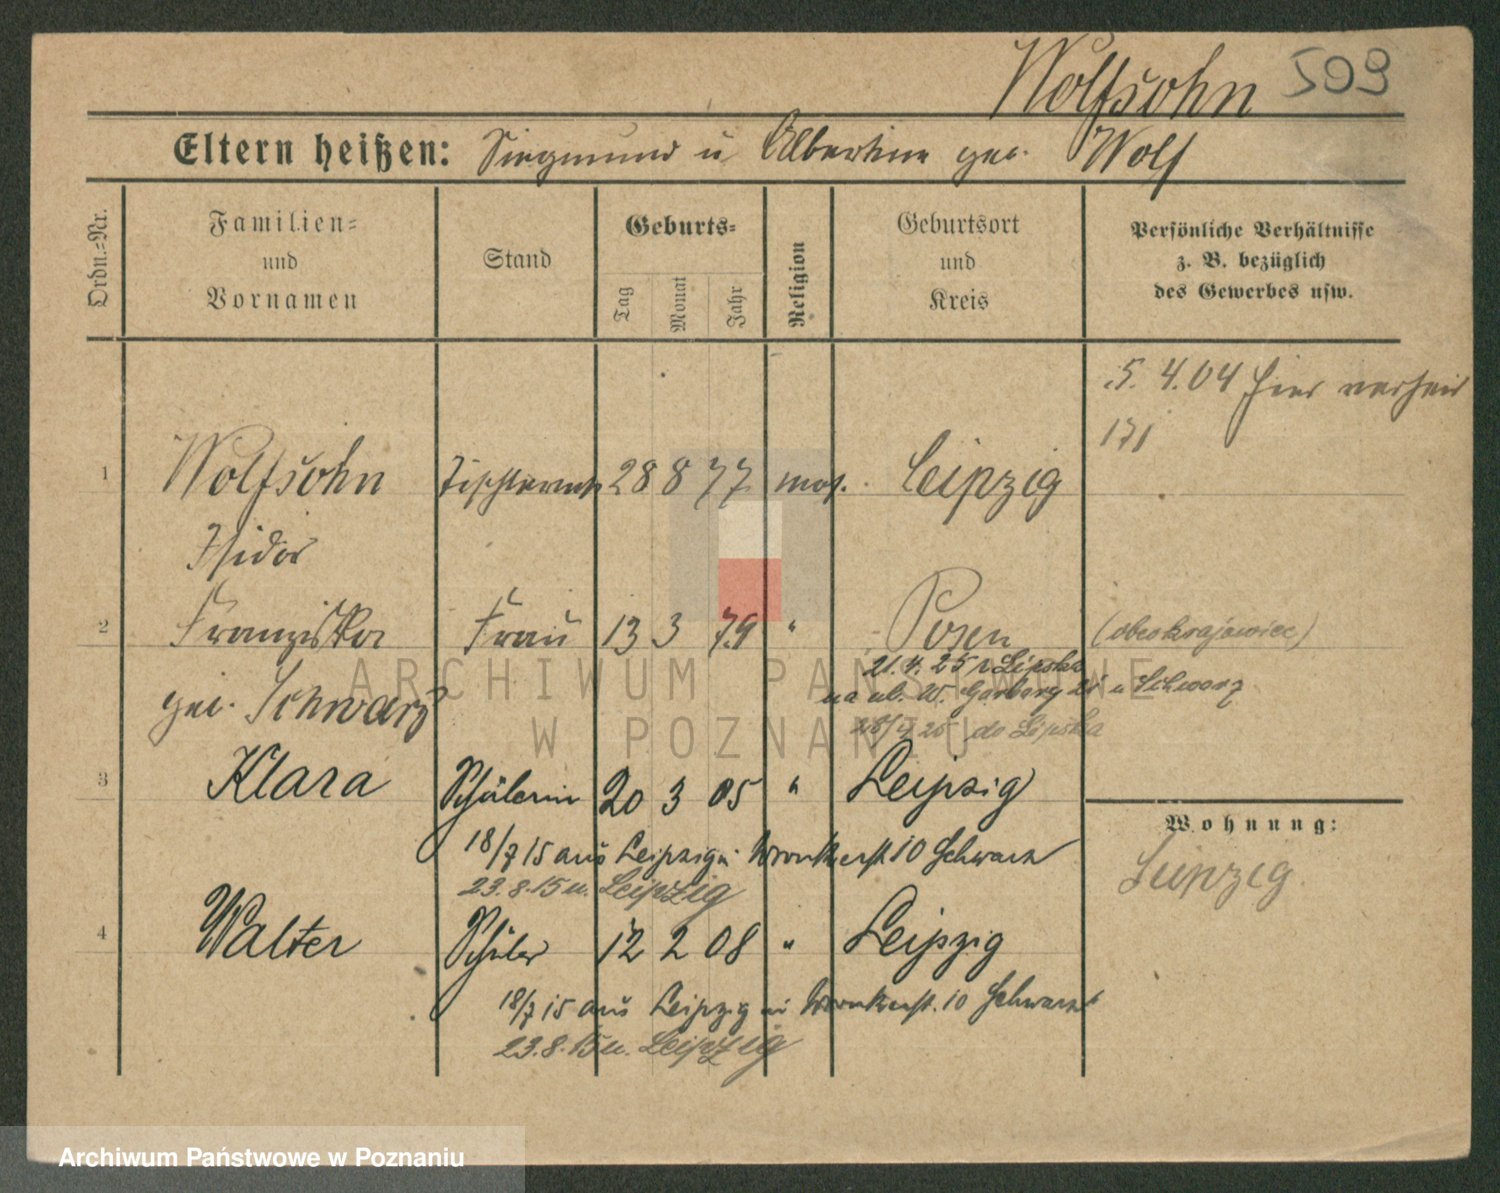 Wolfsohn 599
Eltern heißen: Siegmund u Albertine geb. Wolf
Ordn.=Nr.
Familien=
und
Vornamen
Stand
Geburts=
Tag
Monat
Jahr
Religion
Geburtsort
und
Kreis
Persönliche Verhältnisse
z. B. bezüglich
des Gewerbes usw.
5. 4. 04 hier verheir
171
1 Wolfsohn 28 8 77 mos. Leipzig
Isidor
2 Franziska Frau 13 3 79 " Posen (obcokrajowiec)
21.4.25 z Lipska
na ul. W. Garbary 21 u Schwarz
geb. Schwarz
28/4 25 do Lipska
3 Klara Schülerin 20 3 05 " Leipzig
Wohnung:
18/7 15 aus Leipzig n. Wronkerst. 10 Schwarz
Leipzig
23.8.15 n. Leipzig
4 Walter Schüler 12 2 08 " Leipzig
18/7 15 aus Leipzig n Wronkerst. 10 Schwarz
23.8.15 n. Leipzig
ARCHIWUM PAŃSTWOWE
W POZNANIU
Archiwum Państwowe w Poznaniu